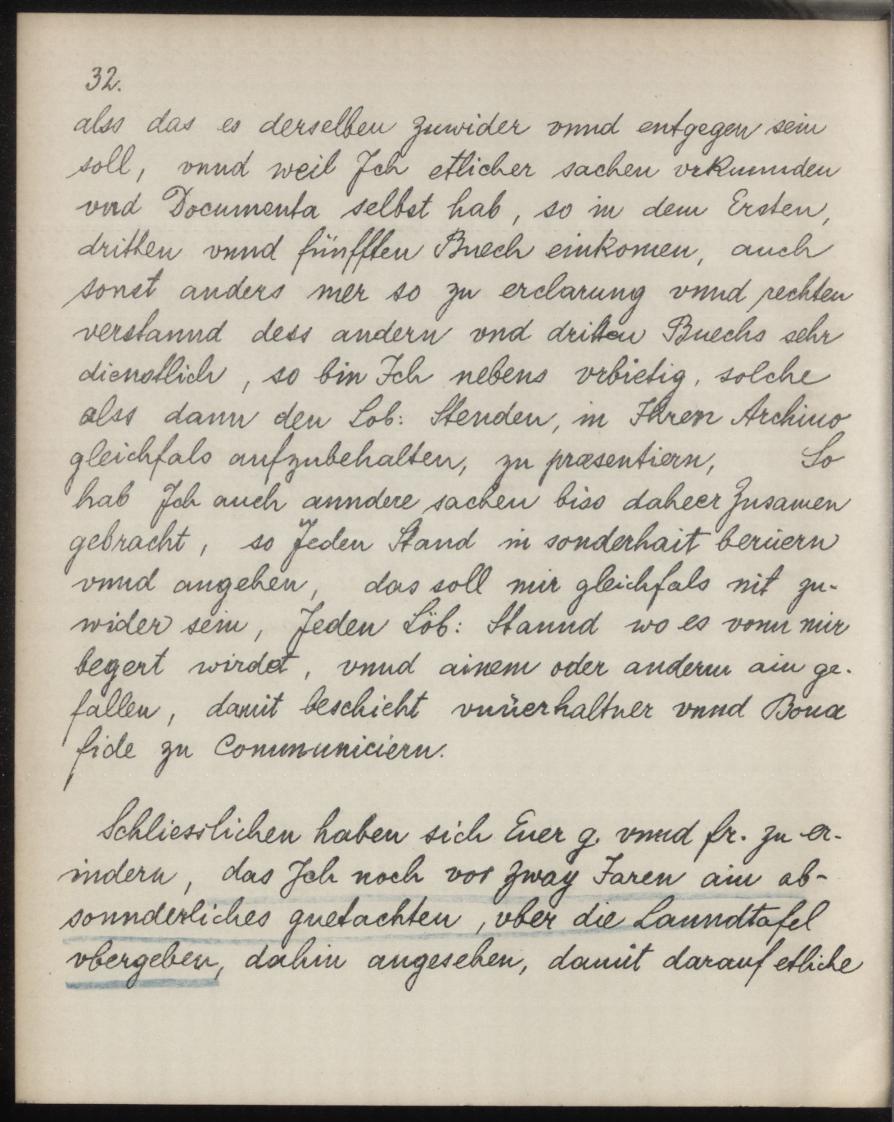 32.
alss das es derselben zuwider vnnd entgegen sein
soll, vnnd weil Ich etlicher sachen vrkunnden
vnd Documenta selbst hab, so in dem Ersten,
dritten vnnd fünfften Buech einkomen, auch
sonst anders mer so zu erclarung vnnd rechten
verstannd dess andern vnd dritten Buechs sehr
dienstlich, so bin Ich nebens vrbietig, solche
alss dann den Lob: Stenden, in Ihren Archiuo
gleichfals aufzubehalten, zu præsentiern, So
hab Ich auch anndere sachen biss daheer zusamen
gebracht, so Jeden Stand in sonderhait berüern
vnnd angehen, das soll mir gleichfals nit zu-
wider sein, Jeden Löb: Stannd wo es vonn mir
begert wirdet, vnnd ainem oder anderm ain ge-
fallen, damit beschicht vnüerhaltner vnnd Bona
fide zu Communiciern.
Schliesslichen haben sich Euer g. vnnd fr. zu er-
indern, das Ich noch vor zway Jaren ain ab-
sonnderliches guetachten, vber die Lanndtafel
vbergeben, dahin angesehen, damit darauf etliche